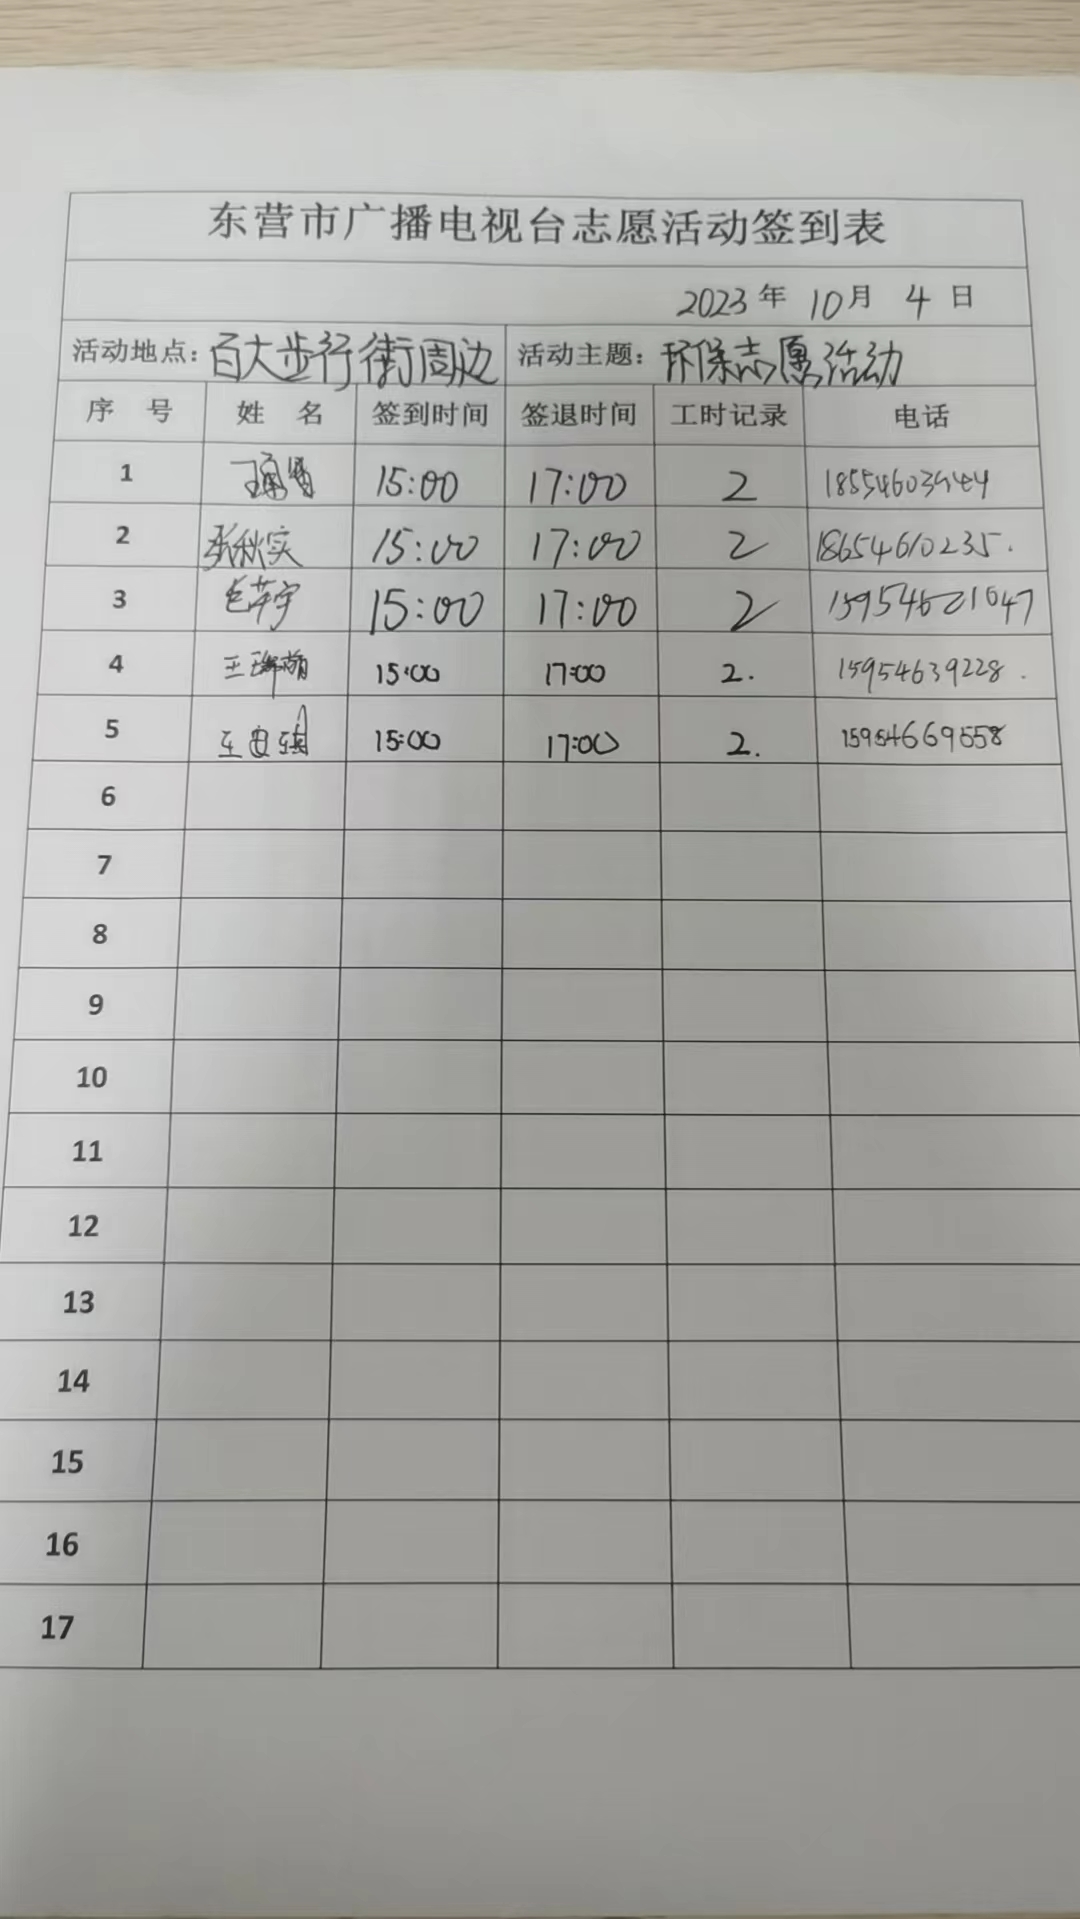 东营市广播电视台志愿活动签到表
2023 年 10 月 4 日
活动地点：百大步行街周边 活动主题：环保志愿活动
序 号 姓 名 签到时间 签退时间 工时记录 电话
1 15:00 17:00 2
2 张秋实 15:00 17:00 2 18654610235.
3 15:00 17:00 2 15954621647
4 15:00 17:00 2. 15954639228.
5 王安琪 15:00 17:00 2. 15954669558
6
7
8
9
10
11
12
13
14
15
16
17